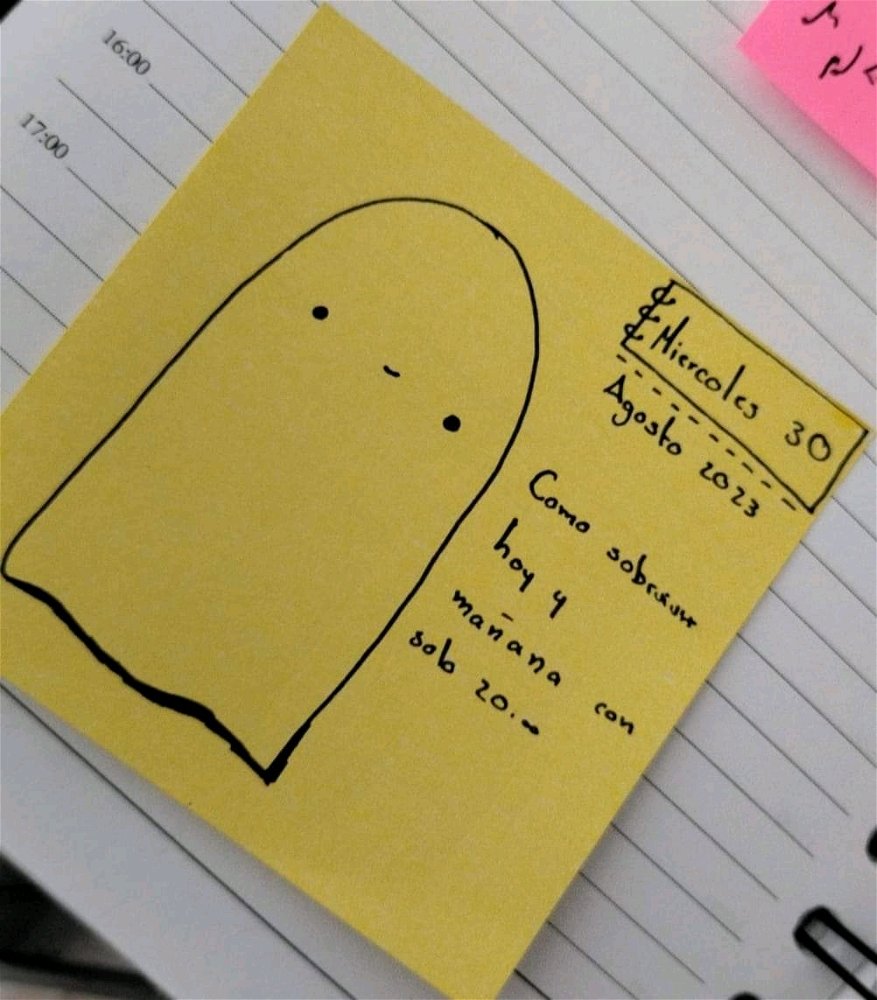 16:00
17:00
Miercoles 30
Agosto 2023
Como sobrevivir
hoy y
mañana con
solo 20.∞